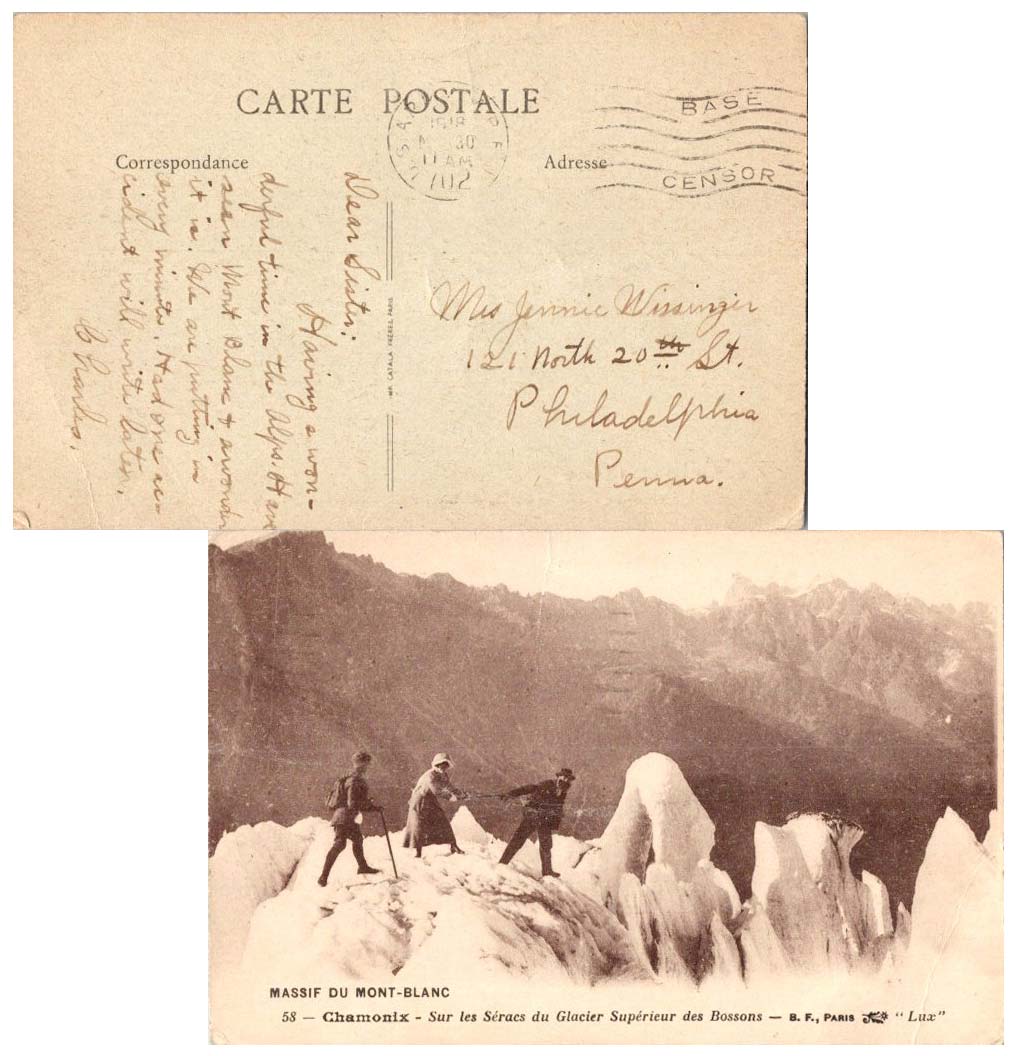 CARTE POSTALE
Correspondance
Adresse
1918
30
11 AM
702
BASE
CENSOR
Dear Sister:
Having a won-
derful time in the Alps. Have
seen Mont Blanc & a wonder
it is. We are putting in
every minute. Had one ac-
cident will write later.
Charles.
IMP. CATALA FRÈRES, PARIS
Miss Jennie Wissinger
121 North 20th St.
Philadelphia
Penna.
MASSIF DU MONT-BLANC
58 — Chamonix - Sur les Séracs du Glacier Supérieur des Bossons — B. F., PARIS "Lux"